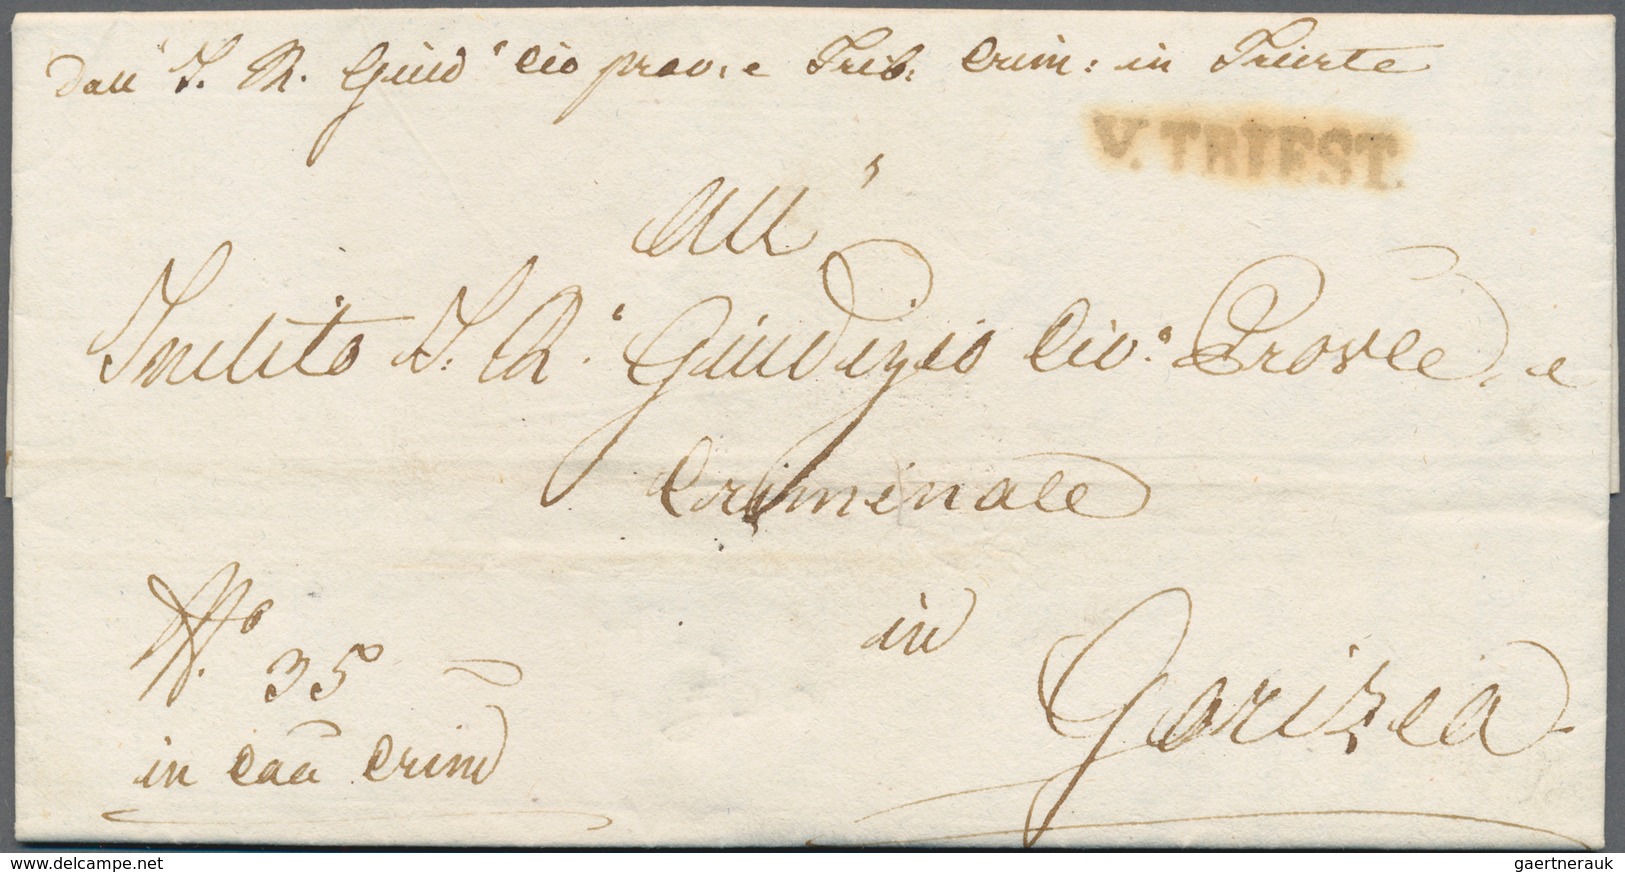 Dall' I. R. Giud° Cio prov. e Trib. Crim: in Trieste
V. TRIEST.
All'
Inclito I. R.° Giudizio Civ.° Provle, e
Criminale
N.° 35
in
Gorizia
in Caã Crim
delcampe.net
gaertnerauk